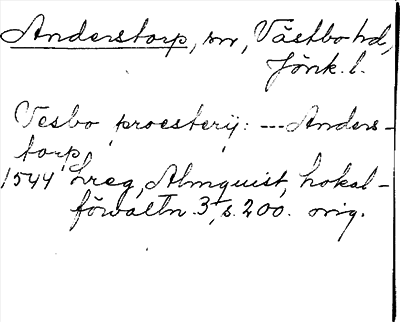 Anderstorp, sn, Västbo hd,
Jönk. l.
Vesbo proesterij: --- Anders-
torp,
1544 Lreg, Almquist, Lokal-
förvaltn. 3, s. 200. orig.